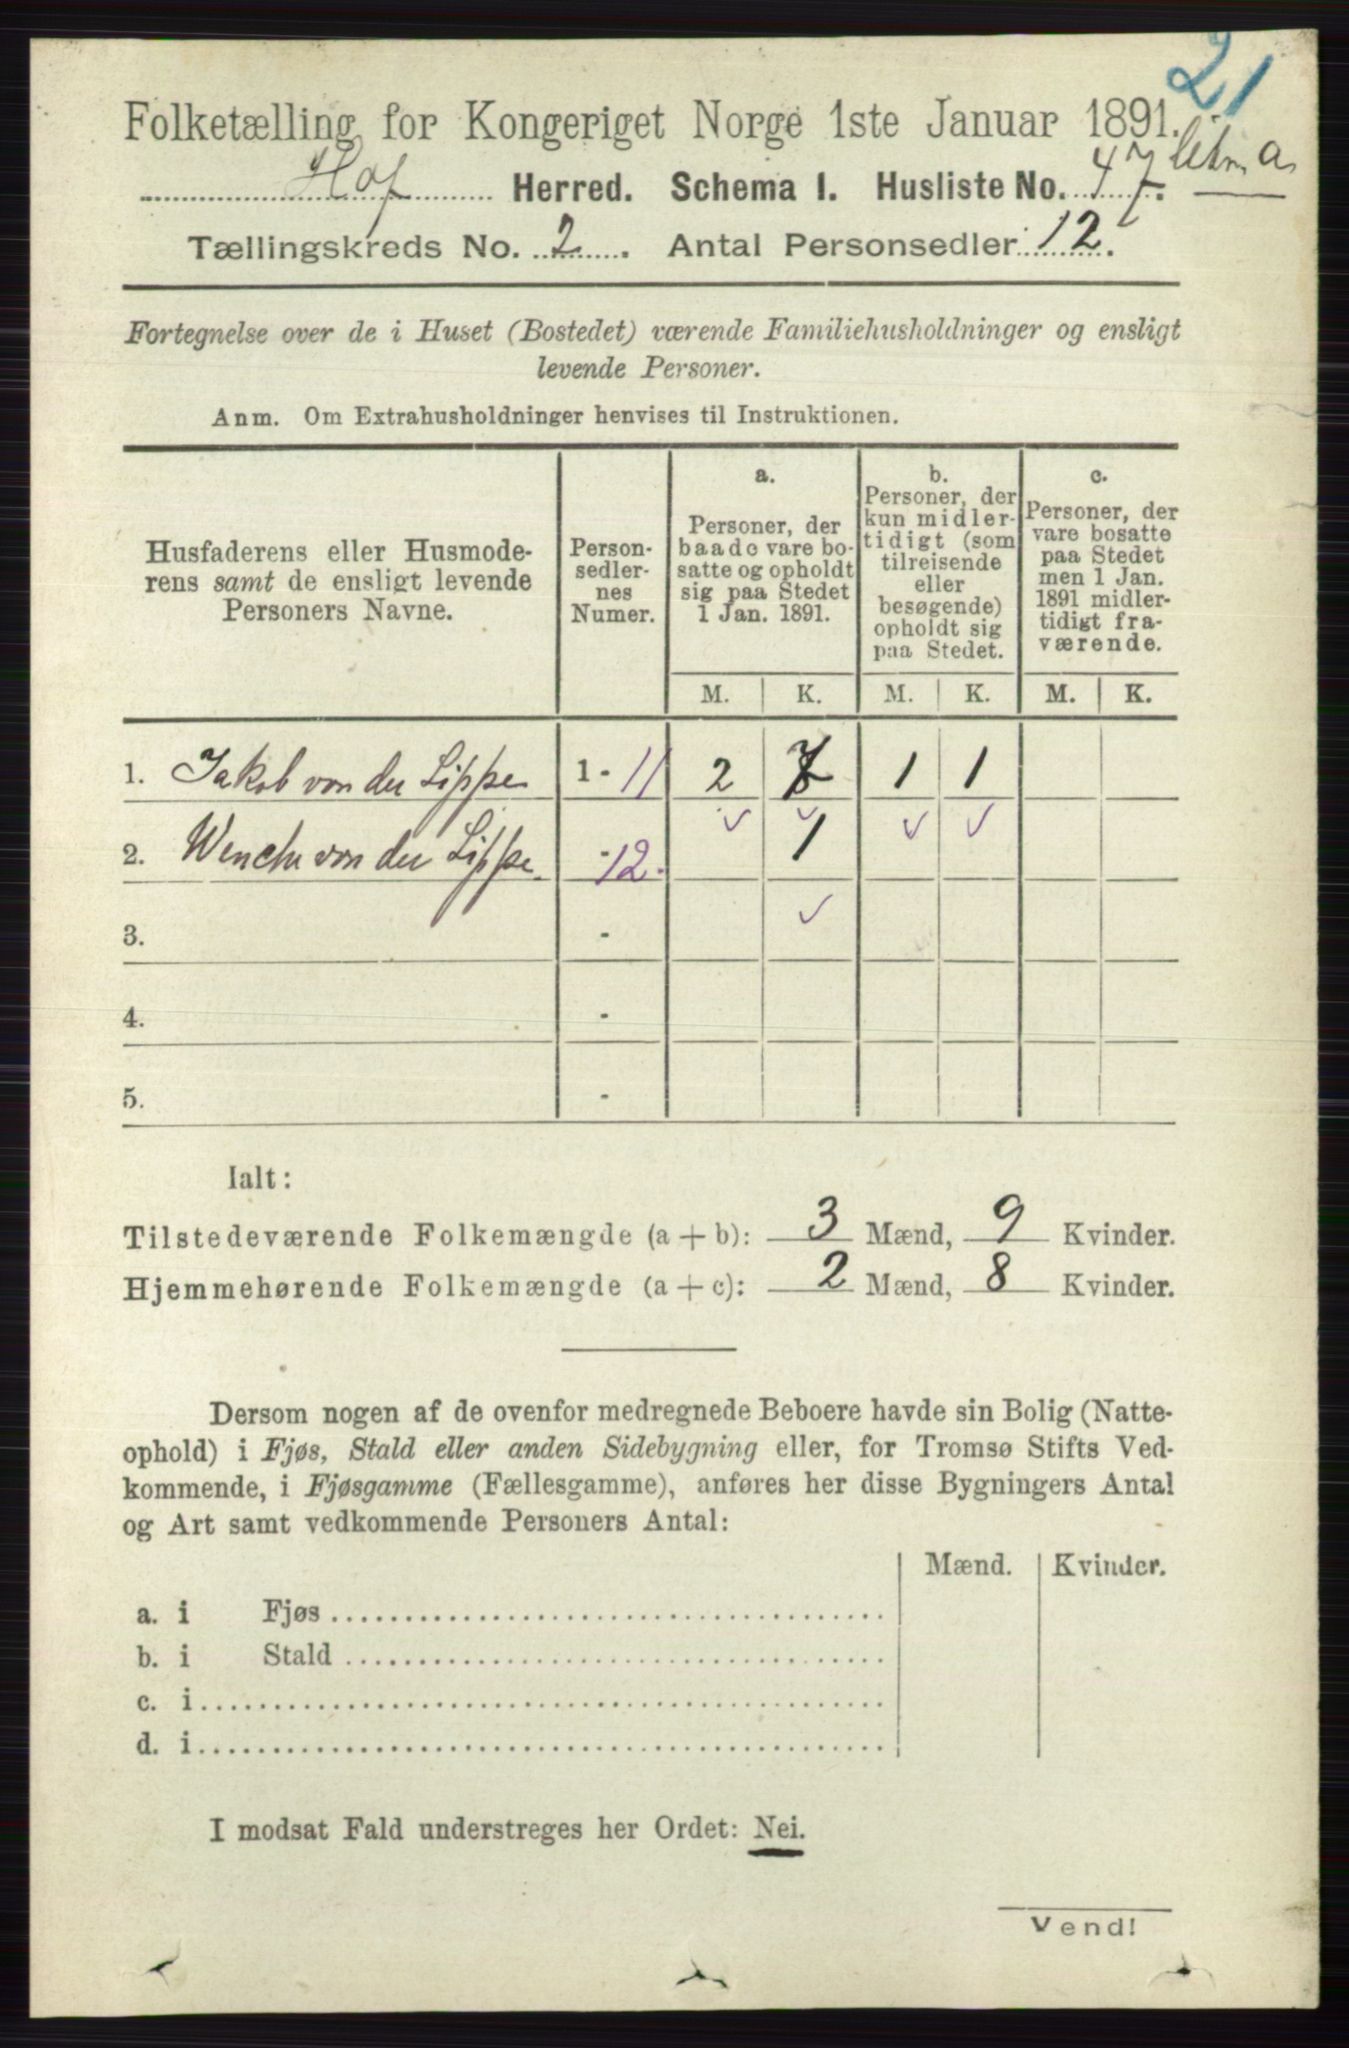 21
Folketælling for Kongeriget Norge 1ste Januar 1891.
Hof Herred. Schema 1. Husliste No. 47. litr. a
Tællingskreds No. 2. Antal Personsedler 12.
Fortegnelse over de i Huset (Bostedet) værende Familiehusholdninger og ensligt
levende Personer.
Anm. Om Extrahusholdninger henvises til Instruktionen.
Husfaderens eller Husmode-
rens samt de ensligt levende
Personers Navne.
Person-
sedler-
nes
Numer.
a.
Personer, der
baade vare bo-
satte og opholdt
sig paa Stedet
1 Jan. 1891.
b.
Personer, der
kun midler-
tidigt (som
tilreisende
eller
besøgende)
opholdt sig
paa Stedet.
c.
Personer, der
vare bosatte
paa Stedet
men 1 Jan.
1891 midler-
tidigt fra-
værende.
M. K. M. K. M. K.
1. Jakob von der Lippe 1 - 11 2 7 1 1
2. Wenche von der Lippe - 12. 1
3. -
4. -
5. -
Ialt:
Tilstedeværende Folkemængde (a + b): 3 Mænd, 9 Kvinder.
Hjemmehørende Folkemængde (a + c): 2 Mænd, 8 Kvinder.
Dersom nogen af de ovenfor medregnede Beboere havde sin Bolig (Natte-
ophold) i Fjøs, Stald eller anden Sidebygning eller, for Tromsø Stifts Ved-
kommende, i Fjøsgamme (Fællesgamme), anføres her disse Bygningers Antal
og Art samt vedkommende Personers Antal:
Mænd. Kvinder.
a. i Fjøs
b. i Stald
c. i
d. i
I modsat Fald understreges her Ordet: Nei.
Vend!